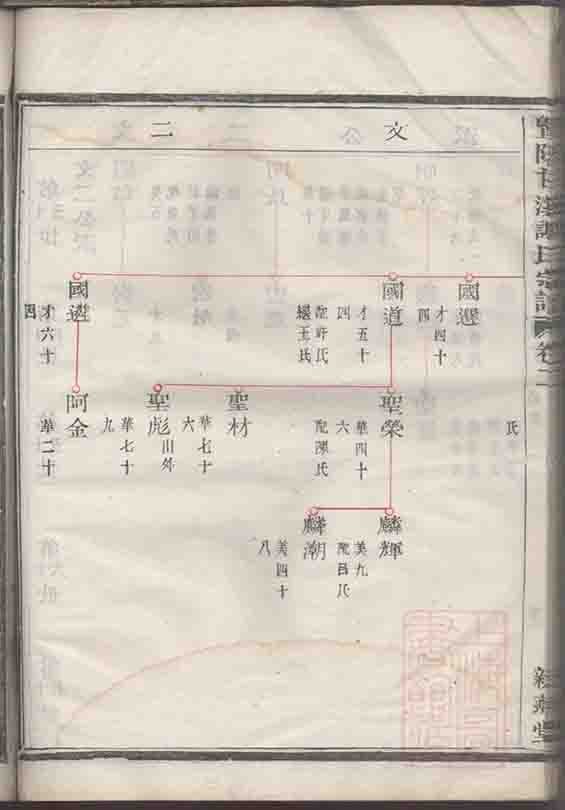 文 二
國遝
才四十
四
國道
才五十
四
配許氏
繼王氏
國遴
才六十
四
氏
聖榮
華四十
六
配陳氏
聖材
華七十
六
聖彪
出外
華七十
九
阿金
華二十
麟輝
美九
配呂氏
麟潮
美四十
八
氏宗譜
卷二